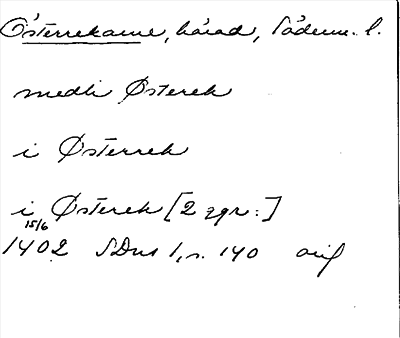 Österrekarne, härad, Söderm. l.
medh Østerek
i Østerrek
i Østerek [2 ggr:]
15/6
1402 SDns 1, s. 140 orif